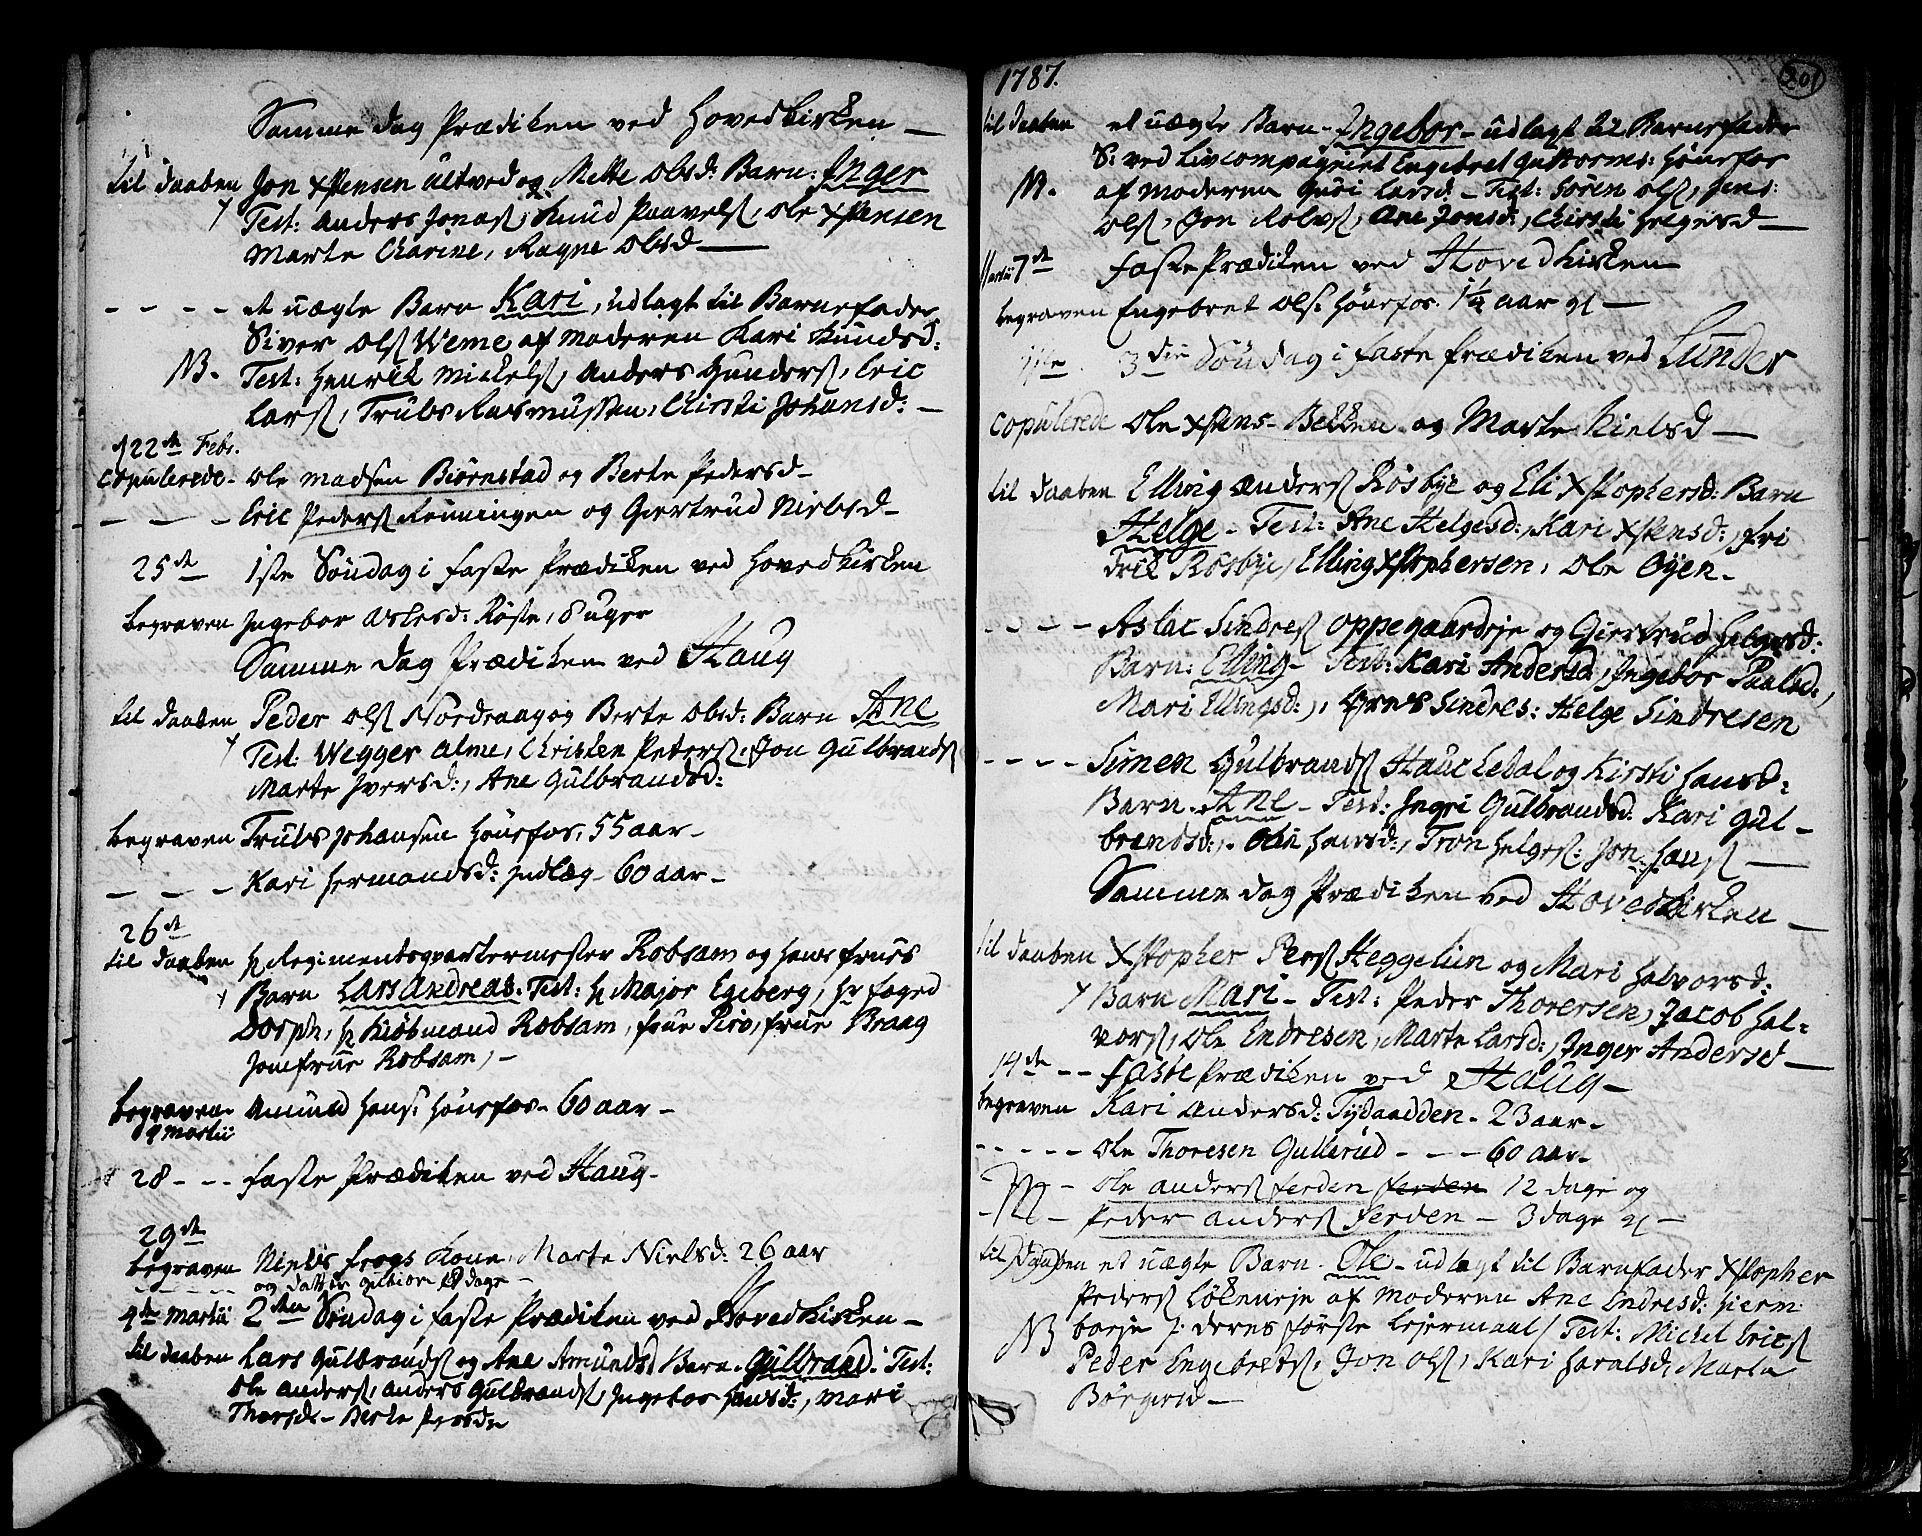 Samme dag Prædiken ved Hovedkirken —
til daaben Jon Xstensen Ultved og Mette Olsd: Barn: Inger
Test: Anders Jonas, Knud Paavels, Ole Xstensen
Marte Charine, Ragne Olsd —
- - - - et uægte Barn Kari, udlagt til Barnefader
Siver Ols Weme af Moderen Kari Knudsd:
NB. Test: Henrik Mickels, Anders Gunders, Eric
Lars, Truls Rasmussen, Chirsti Johansd: —
d 22de Febr.
Copulerede - Ole Madsen Biørnstad og Berte Pedersd -
- - - Eric Peders Renningen og Giertrud Nielsd -
25de 1ste Søndag i Faste Prædiken ved Hovedkirken
begraven Ingebor Aslesd: Røste, 8 uger
Samme dag Prædiken ved Haug
til daaben Peder Ols Nordraag og Berte Olsd: Barn Ane
Test: Wegger Alme, Christen Peters, Jon Gulbrands
Marte Iversd:, Ane Gulbrandsd:
begraven Truls Johansen Hønefos, 55 aar -
- - - Kari Hermandsd: Indlæg - 60 aar -
26de
til daaben H Regimentsqvartermester Robsam og Hans Frues
Barn Lars Andreas. Test: H Major Egeberg, Hr Foged
Dorph, H Kiøbmand Robsam, Frue Piro, Frue Braag
Jomfrue Robsam, -
begraven Amund Hans: Hønefos - 60 aar -
9 Martii
28 - - - Faste Prædiken ved Haug -
29de
begraven Niels Frogs Kone, Marte Nielsd: 26 aar
og datter 8 dage -
4de Martii 2den Søndag i Faste Prædiken ved Hovedkirken -
til daaben Lars Gulbrands og Ane Amundsd Barn. Gulbrand. Test:
Ole Anders, Anders Gulbrands, Ingebor Hansd:, Mari
Thorsd - Berte Persd
1787. 201
til daaben et uægte Barn - Ingebor - udlagt til Barnefader
S: ved Livcompagniet Engebret Guttorms: Hønefos
N. af Moderen Guri Larsd - Test: Søren Ols, Jens
Ols, Jon Rolvs, Ane Jonsd:, Chirsti Helgesd —
Martii 7de Faste Prædiken ved Hovedkirken
begraven Engebret Ols: Hønefos. 1¼ aar gl —
11te 3die Søndag i Faste Prædiken ved Lunder
Copulerede Ole Xstens - Bekken og Marte Nielsd —
til daaben Elling Anders Røsbye og Eli Xstophersd: Barn
Helge - Test: Ane Helgesd:, Kari Xstensd:, Fri
drik Røsbye, Elling Xstophersen, Ole Øyen -
- - - - Aslac Sindres Oppegaardeje og Giertrud Helgesd:
Barn: Elling - Test: Kari Andersd, Ingebor Paalsd:,
Mari Ellingsd:, Sindres: Helge Sindresen
- - - - Simen Gulbrands Hauc Ledal og Kirsti Hansd:
Barn. Ane - Test: Ingri Gulbrandsd. Kari Gul-
brandsd:, Olin Hansd:, Tron Helges: Jon Hans —
Samme dag Prædiken ved Hovedkirken —
til daaben Xstopher Pers Heggelun og Mari Halvorsd:
Barn Mari - Test: Peder Thorersen, Jacob Hal-
vors, Ole Endresen, Marte Larsd:, Inger Andersd —
14de - - Faste Prædiken ved Haug -
begraven Kari Andersd: Tydaadden - 23 aar -
- - - - - Ole Thoresen Gullerud - - - 60 aar -
- Ole Anders Ferden Ferden 12 dage og
- Peder Anders Ferden - 3 dage gl -
til Daaben et uægte Barn. Ole - udlagt til Barnfader Xstopher
Peders Løkeneje af Moderen Ane Endresd: Hierm
NB boeje /: deres første Lejermaal / Test: Michel Erics
Peder Engebrets, Jon Ols, Kari Haralsd, Marta
Børgersd —